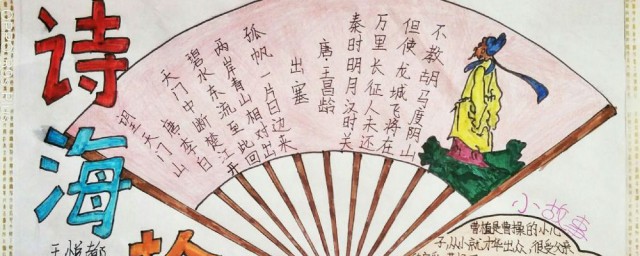 诗海
望天门山
唐李白
天门中断楚江开
碧水东流至此回
两岸青山相对出
孤帆一片日边来
出塞
唐·王昌龄
秦时明月汉时关
万里长征人未还
但使龙城飞将在
不教胡马度阴山
小故事
曹植是曹操的小儿
子,从小就才华出众,很受父亲